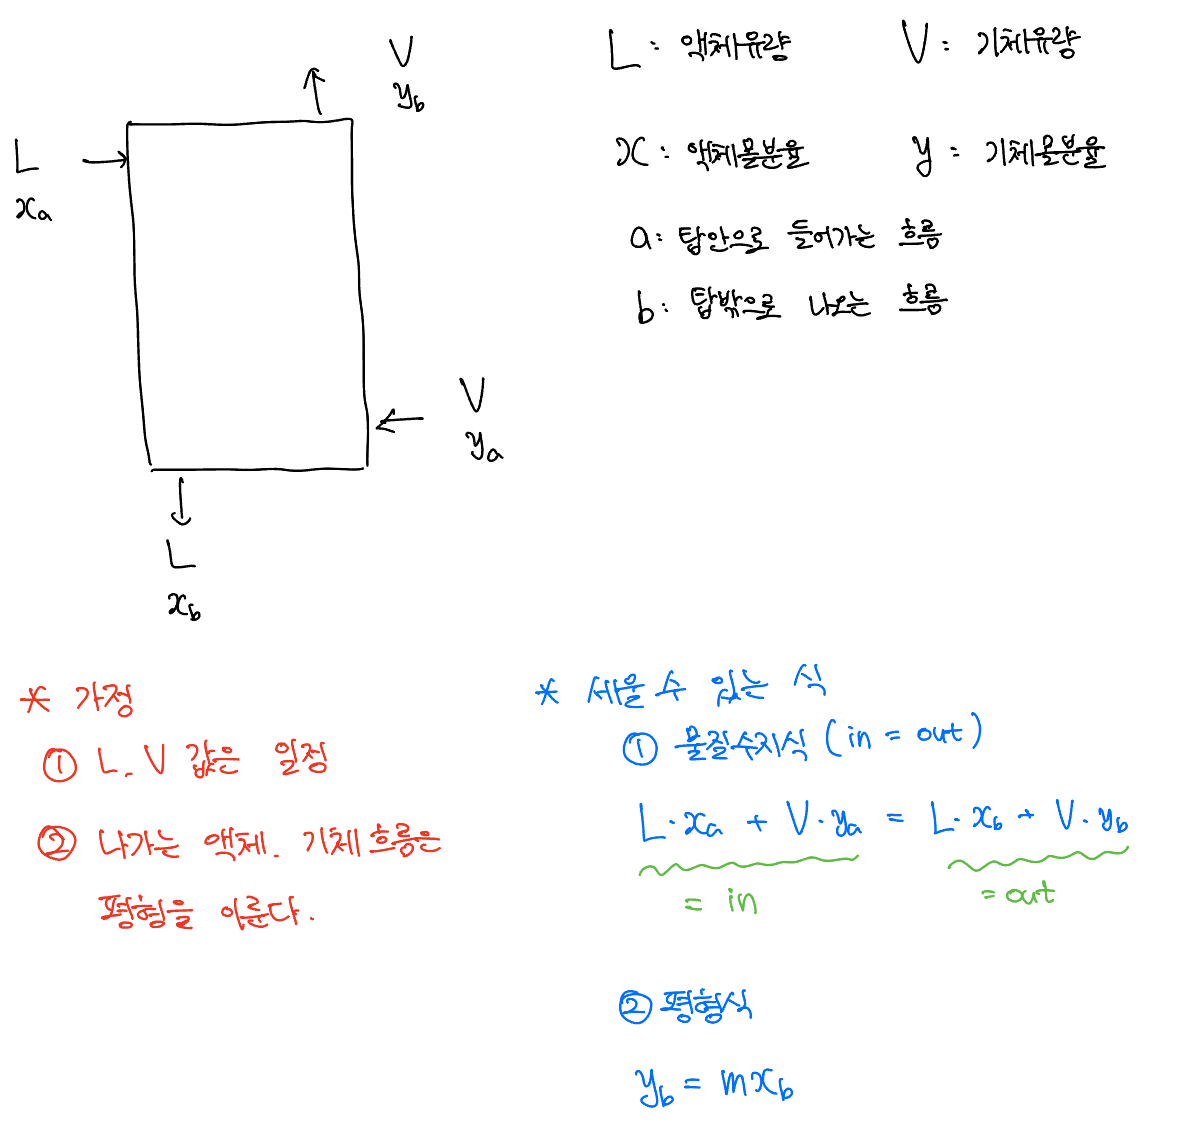 V
y_b
L
x_a
V
y_a
L
x_b
L : 액체유량 V : 기체유량
x : 액체몰분율 y : 기체몰분율
a : 탑안으로 들어가는 흐름
b : 탑밖으로 나오는 흐름
* 가정
① L, V 값은 일정
② 나가는 액체, 기체흐름은
평형을 이룬다.
* 세울 수 있는 식
① 물질수지식 (in = out)
L·x_a + V·y_a = L·x_b + V·y_b
= in = out
② 평형식
y_b = mx_b